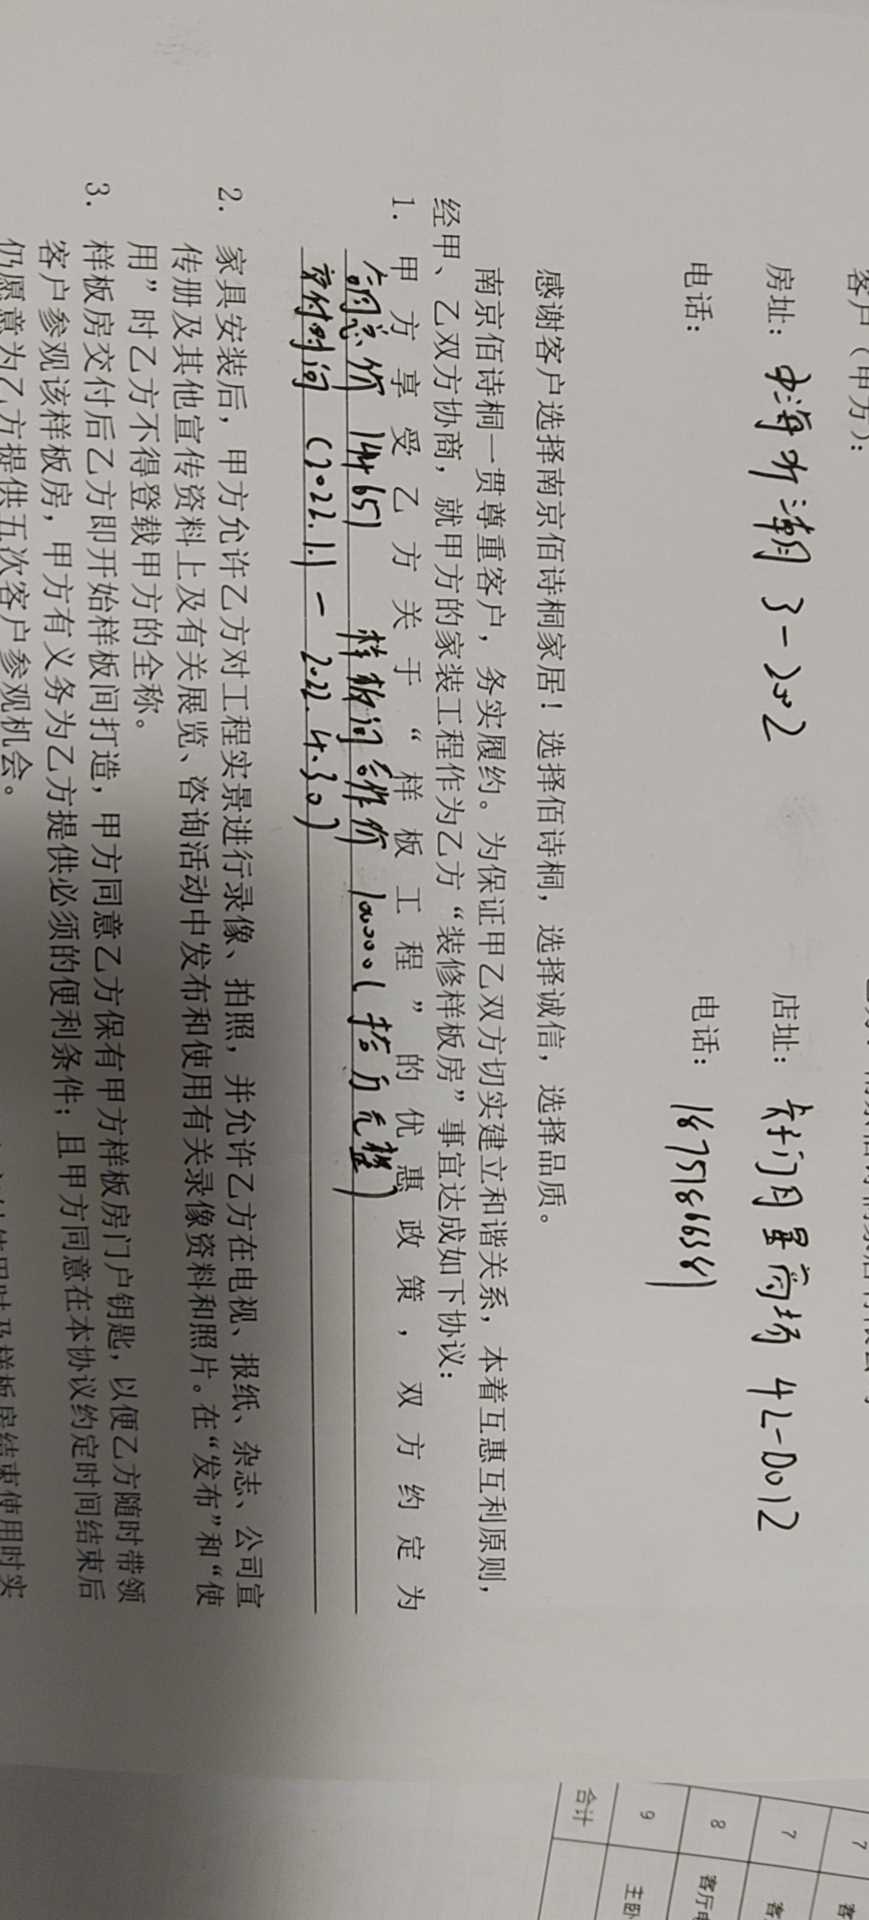 客户（甲方）：
房址：中海听潮 3-202
店址：卡子门月星商场 4L-D012
电话：
电话：18751866381
感谢客户选择南京佰诗桐家居！选择佰诗桐，选择诚信，选择品质。
南京佰诗桐一贯尊重客户，务实履约。为保证甲乙双方切实建立和谐关系，本着互惠互利原则，
经甲、乙双方协商，就甲方的家装工程作为乙方“装修样板房”事宜达成如下协议：
1. 甲方享受乙方关于“样板工程”的优惠政策，双方约定为
合同总价 144651 样板间合作价 100000（拾万元整）
交付时间（2022.1.1－2022.4.30）
2. 家具安装后，甲方允许乙方对工程实景进行录像、拍照，并允许乙方在电视、报纸、杂志、公司宣
传册及其他宣传资料上及有关展览、咨询活动中发布和使用有关录像资料和照片。在“发布”和“使
用”时乙方不得登载甲方的全称。
3. 样板房交付后乙方即开始样板间打造，甲方同意乙方保有甲方样板房门户钥匙，以便乙方随时带领
客户参观该样板房，甲方有义务为乙方提供必须的便利条件；且甲方同意在本协议约定时间结束后
仍愿意为乙方提供五次客户参观机会。
7 客
7 客
8 客厅
9 主卧
合计